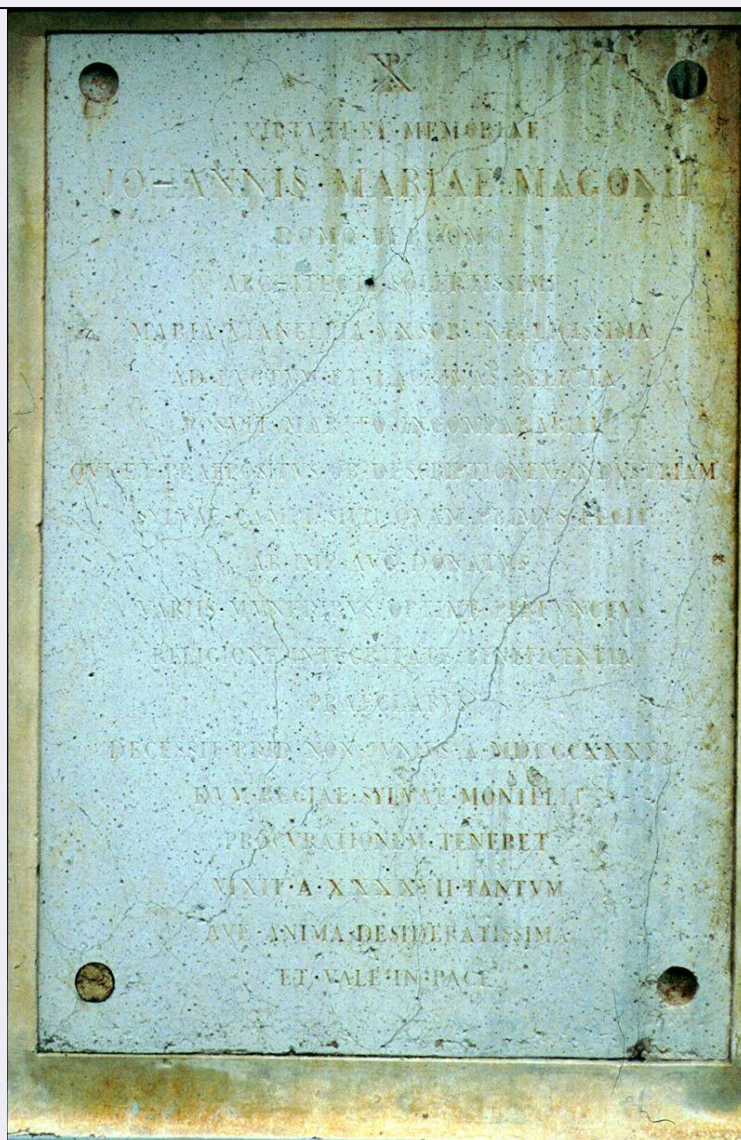 VIRTVTI ET MEMORIAE
JOHANNIS·MARIAE·MAGONII
DOMO·BERGOMO
ARCHITECTI·SOLERTISSIMI
MARIA·VIANELLIA·VXSOR·INFELICISSIMA
AD·LVCTVM·ET·LACRIMAS·RELICTA
POSVIT·MARITO·INCOMPARABILI
QVI·ET·PRAEPOSITVS·OB·DESCRIPTIONEM·INDVSTRIAM
SYLVAE·QVAM·PRIMVS·FECIT
AB·IMP·AVG·DONATVS
VARIIS·MVNERIBVS·OPTIME·PERFVNCTVS
RELIGIONE·INTEGRITATE·BENEFICENTIA
PRAECLARVS
DECESSIT·PRID·NON·JVNIAS·A
DVM·REGIAE·SYLVAE·MONTELLI
PROCVRATIONEM·TENERET
VIXIT·A·XXXX·II·TANTVM
AVE·ANIMA·DESIDERATISSIMA
ET·VALE·IN·PACE